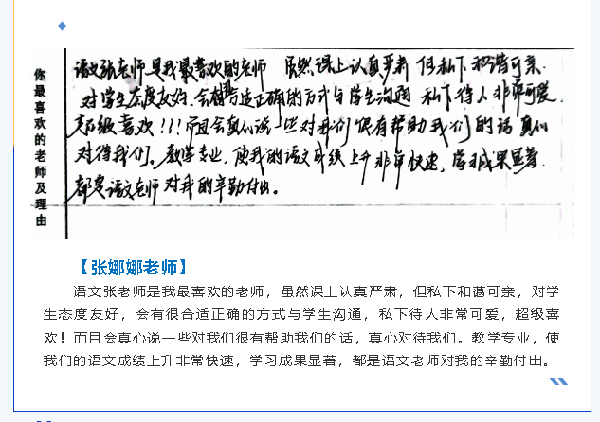 你最喜欢的老师及理由
语文张老师是我最喜欢的老师 虽然课上认真严肃 但私下和谐可亲.
对学生态度友好.会有合适正确的方式与学生沟通 私下待人非常可爱.
超级喜欢!!!而且会真心说一些对我们很有帮助我们的话 真心
对待我们。教学专业,使我的语文成绩上升非常快速,学习成果显著.
都是语文老师对我的辛勤付出。
【张娜娜老师】
语文张老师是我最喜欢的老师,虽然课上认真严肃,但私下和谐可亲,对学
生态度友好,会有很合适正确的方式与学生沟通,私下待人非常可爱,超级喜
欢!而且会真心说一些对我们很有帮助我们的话,真心对待我们。教学专业,使
我们的语文成绩上升非常快速,学习成果显著,都是语文老师对我的辛勤付出。